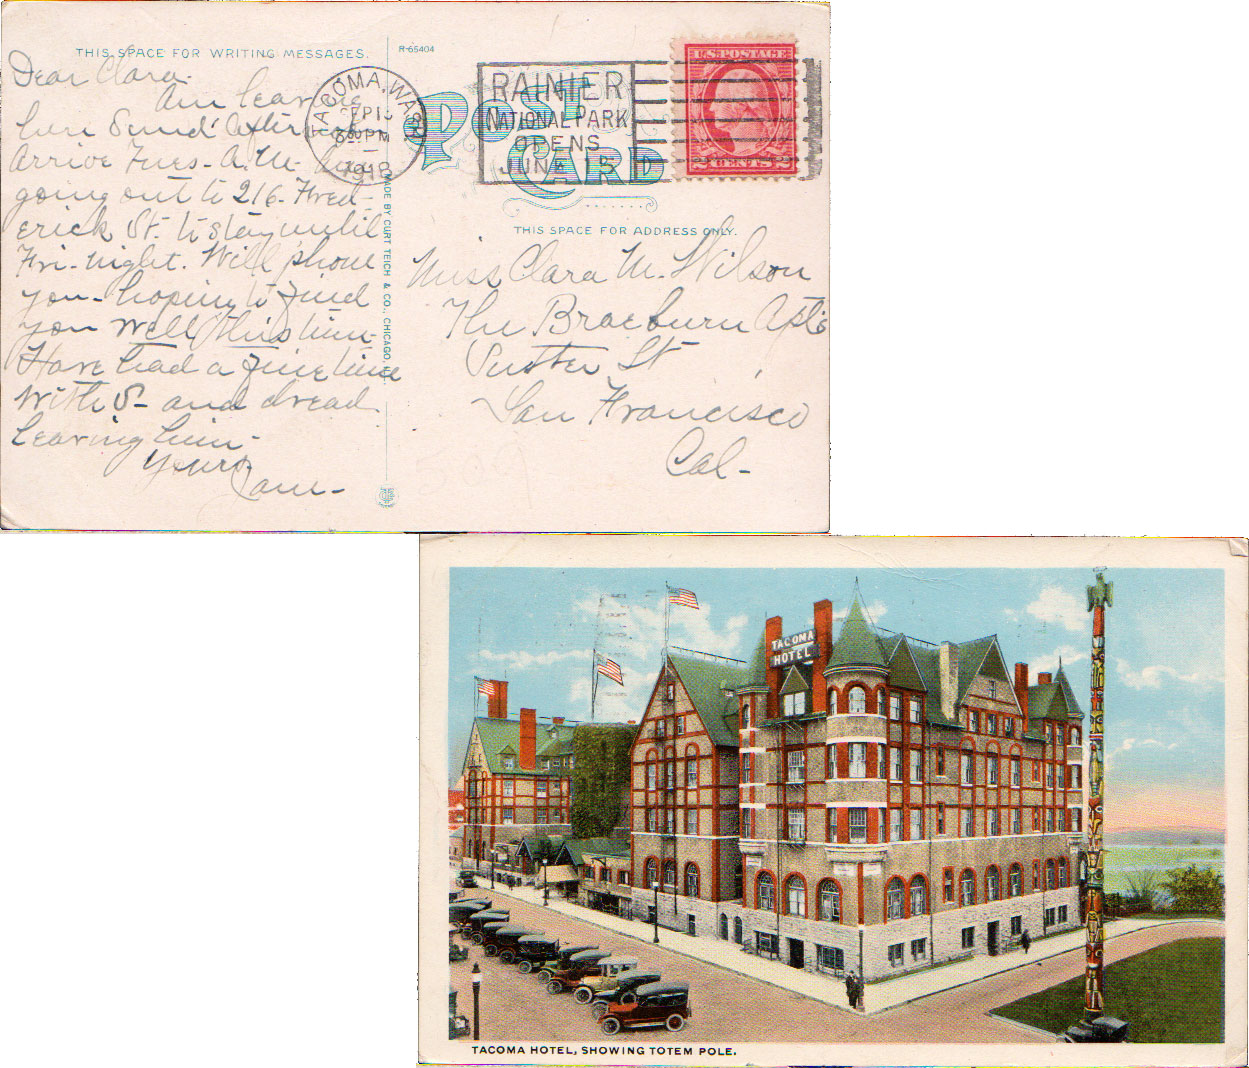 THIS SPACE FOR WRITING MESSAGES.
R-65404
Dear Clara.
Am leaving
here Sund' Afternoon
Arrive Tues- A.M.
going out to 216- Fred-
erick St. to stay until
Fri- night. Will phone
you- hoping to find
you well this time-
Have had a fine time
With S- and dread
leaving him-
Yours
MADE BY CURT TEICH & CO., CHICAGO, ILL.
TACOMA, WASH.
SEP 1
PM
191
RAINIER
NATIONAL PARK
OPENS
JUNE 15
POST
CARD
U.S. POSTAGE
2 CENTS 2
THIS SPACE FOR ADDRESS ONLY.
Miss Clara M. Wilson
The Braeburn Apts
Sutter St
San Francisco
Cal-
TACOMA
HOTEL
TACOMA HOTEL, SHOWING TOTEM POLE.